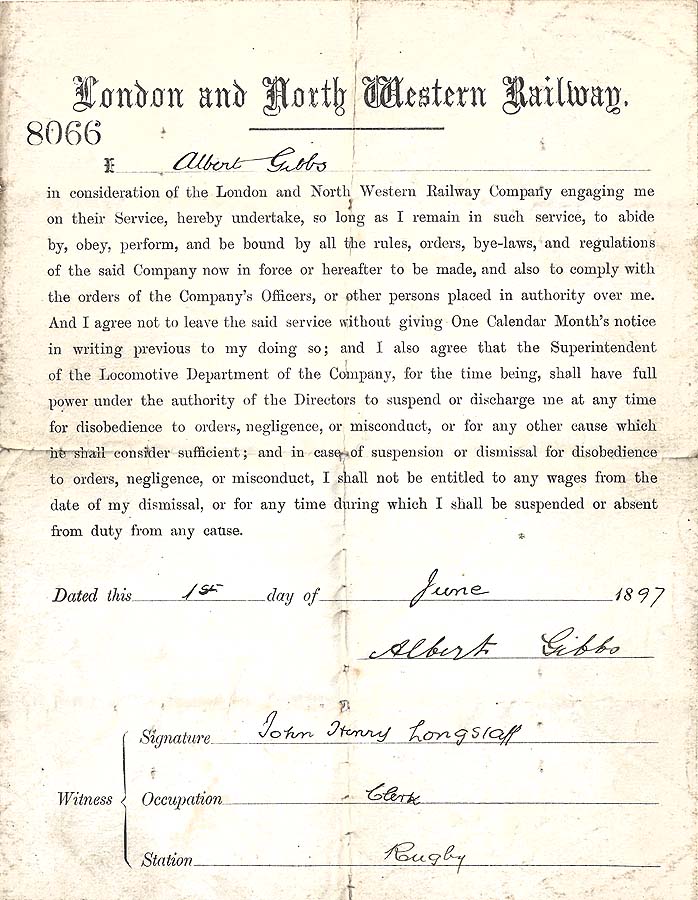 London and North Western Railway.
8066
I Albert Gibbs
in consideration of the London and North Western Railway Company engaging me
on their Service, hereby undertake, so long as I remain in such service, to abide
by, obey, perform, and be bound by all the rules, orders, bye-laws, and regulations
of the said Company now in force or hereafter to be made, and also to comply with
the orders of the Company's Officers, or other persons placed in authority over me.
And I agree not to leave the said service without giving One Calendar Month's notice
in writing previous to my doing so; and I also agree that the Superintendent
of the Locomotive Department of the Company, for the time being, shall have full
power under the authority of the Directors to suspend or discharge me at any time
for disobedience to orders, negligence, or misconduct, or for any other cause which
he shall consider sufficient; and in case of suspension or dismissal for disobedience
to orders, negligence, or misconduct, I shall not be entitled to any wages from the
date of my dismissal, or for any time during which I shall be suspended or absent
from duty from any cause.
Dated this 1st day of June 1897
Albert Gibbs
Signature John Henry Longstaff
Witness Occupation Clerk
Station Rugby